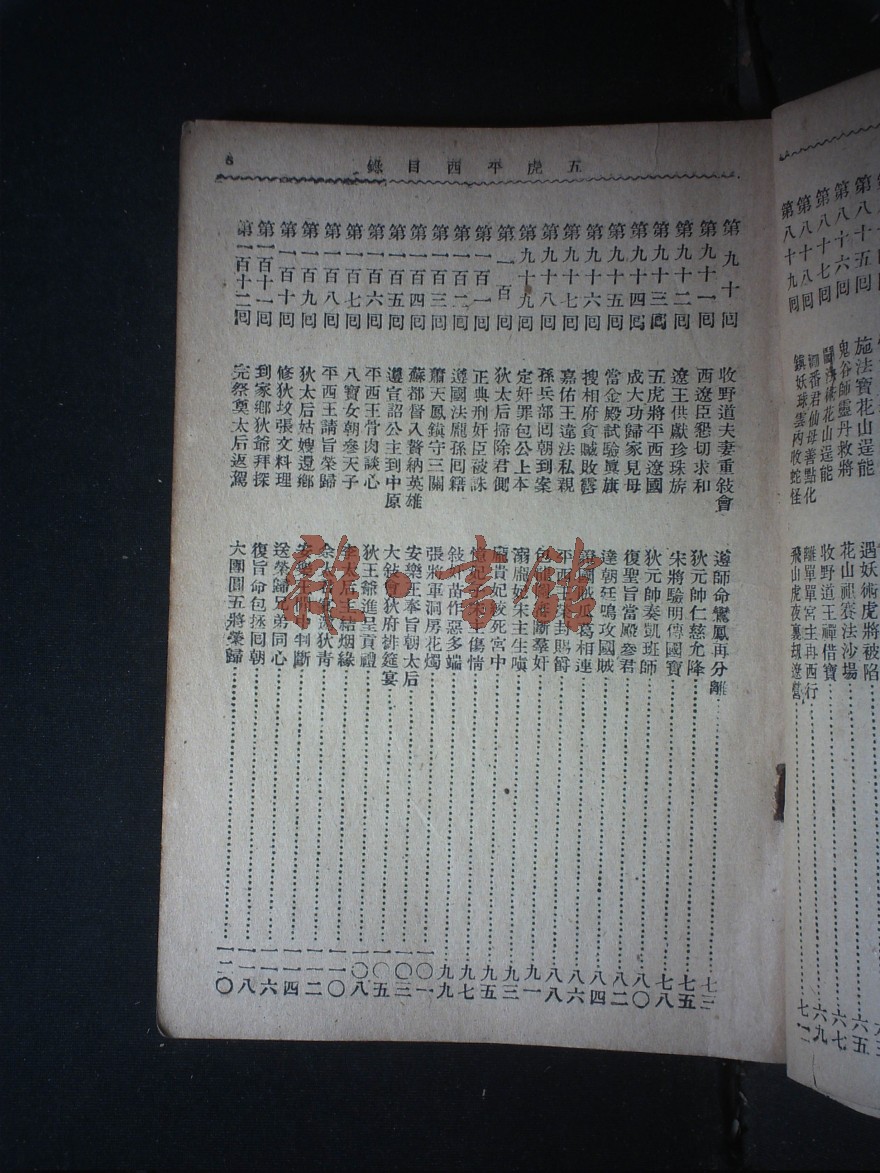 五虎平西目錄
8
第九十回 收野道夫妻重敍會 遵師命鸞鳳再分離 七三
第九十一回 西遼臣懇切求和 狄元帥仁慈允降 七五
第九十二回 遼王供獻珍珠旂 宋將驗明傳國寶 七八
第九十三回 五虎將平西遼國 狄元帥奏凱班師 八〇
第九十四回 成大功歸家見母 復聖旨當殿參君 八二
第九十五回 當金殿試驗厦旗 達朝廷鳴攻國賊 八四
第九十六回 搜相府貪贓敗露 瓜葛相連 八六
第九十七回 嘉佑王違法私親 平西王 封賜爵 八八
第九十八回 孫兵部回朝到案 包 斷羣奸 九一
第九十九回 定奸罪包公上本 溺龐妃宋主生嗔 九三
第一百回 狄太后掃除君側 龐貴妃絞死宮中 九五
第一百一回 正典刑奸臣被誅 憶妃子宋主傷情 九七
第一百二回 遵國法龐孫回籍 敍奸苗作惡多端 九九
第一百三回 蕭天鳳鎮守三關 張將軍洞房花燭 一〇一
第一百四回 蘇都督入贅納英雄 安樂王奉旨朝太后 一〇三
第一百五回 遵宣詔公主到中原 大敍會狄府排筵宴 一〇五
第一百六回 平西王骨肉談心 狄王爺進呈貢禮 一〇八
第一百七回 八寶女朝參天子 太后主結烟緣 一一〇
第一百八回 平西王請旨榮歸 狄青 一一二
第一百九回 狄太后姑嫂還鄉 判斷 一一四
第一百十回 修狄坟張文料理 送榮歸兄弟同心 一一六
第一百十一回 到家鄉狄爺拜探 復旨命包拯回朝 一一八
第一百十二回 完祭奠太后返駕 大團圓五將榮歸 一二〇
雜·書館
第八十五回 施法寶花山逞能 遇妖術虎將被陷 六五
第八十六回 鬼谷師靈丹救將 花山祖賽法沙場 六七
第八十七回 花山逞能 收野道王禪借寶 六九
第八十八回 番君仙母善點化 離單單宮生再西行
第八十九回 鎮妖球雲內收蛇怪 飛山虎夜裏刼遼營 七二